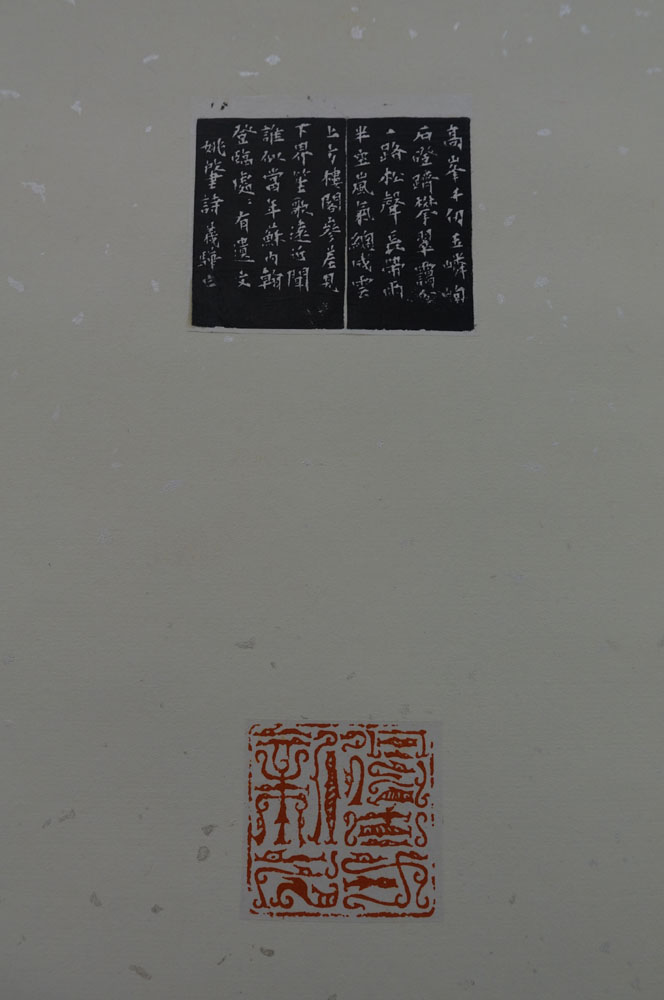 高峯千仞玉嶙峋
石磴躋攀翠靄分
一路松聲長帶雨
半空嵐氣總成雲
上方樓閣參差見
下界笙歌遠近聞
誰似當年蘇內翰
登臨處〻有遺文
姚肇詩